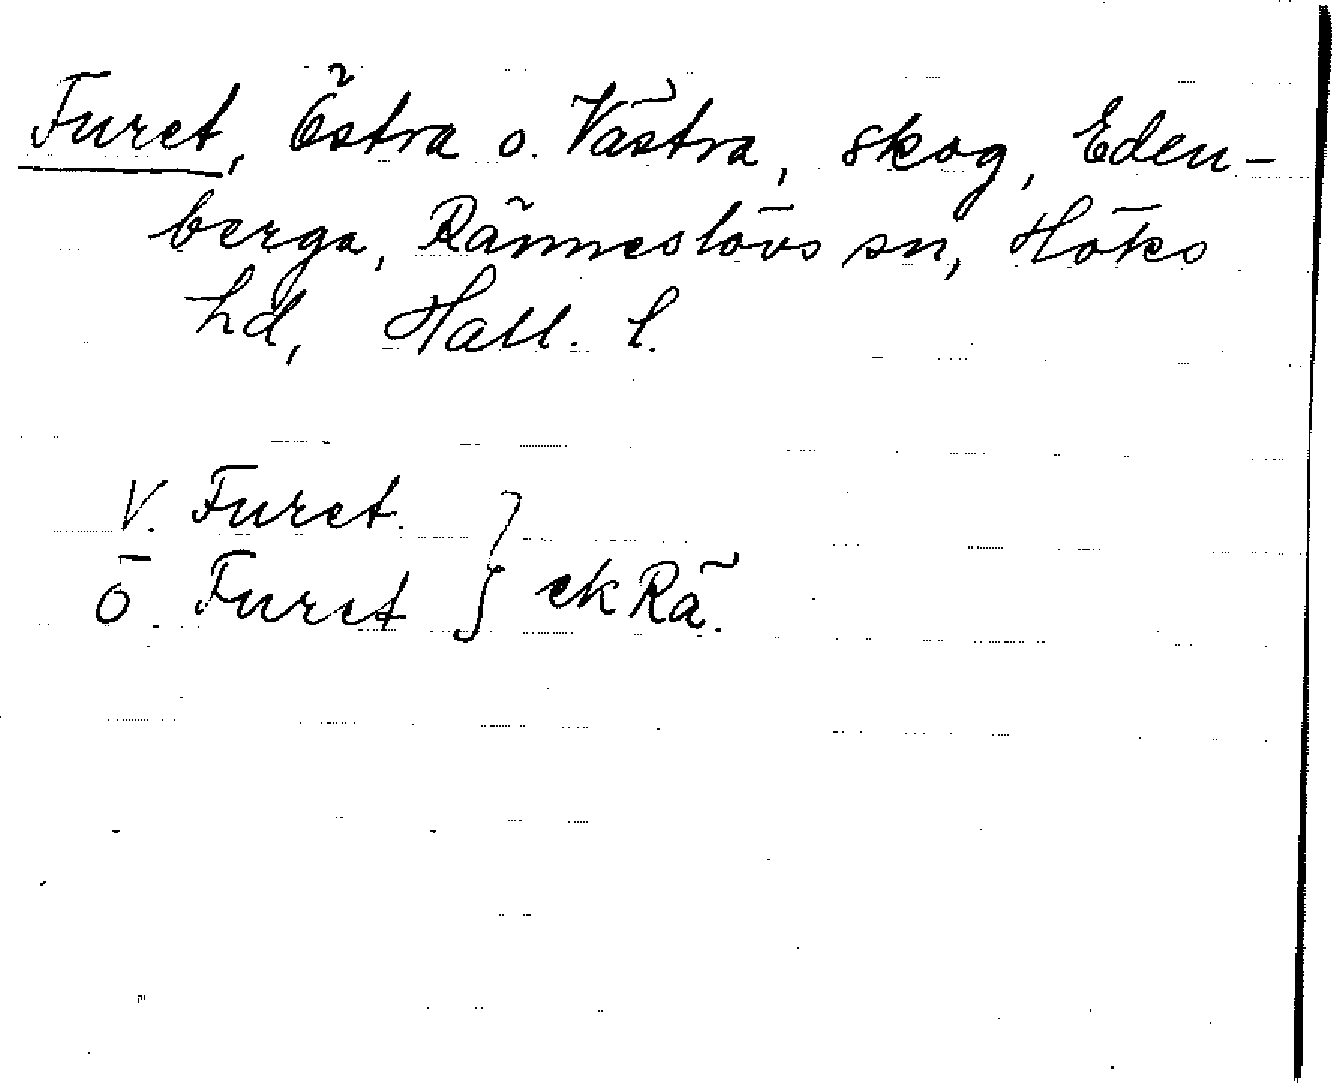 Furet, Östra o. Västra, skog, Eden-
berga, Ränneslövs sn, Höks
hd, Hall. l.
V. Furet.
Ö. Furet } ekRä.